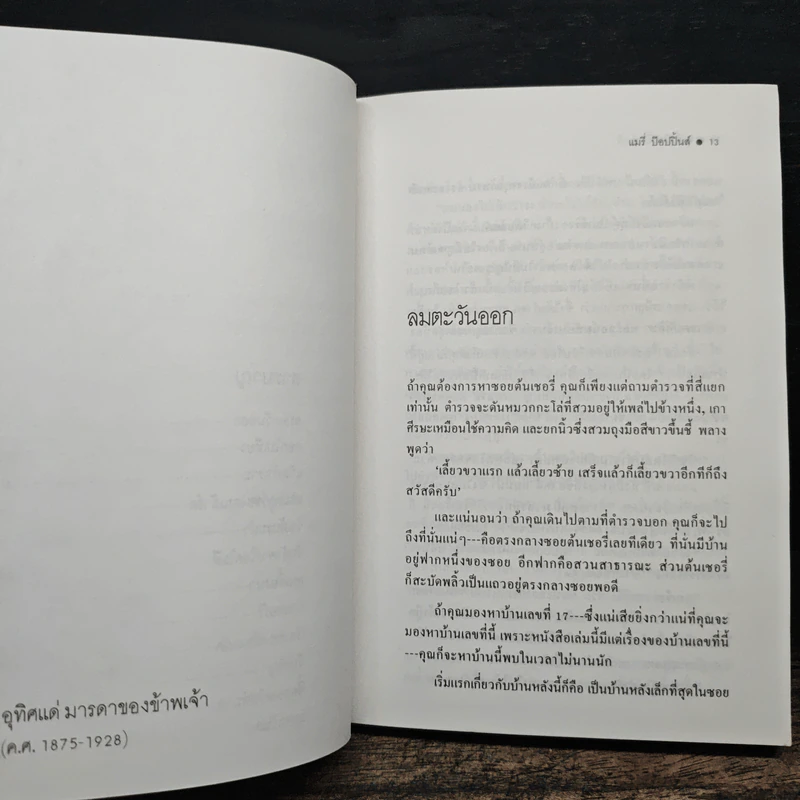 อุทิศแด่ มารดาของข้าพเจ้า
(ค.ศ. 1875-1928)
แมรี่ ป๊อปปิ้นส์ ● 13
ลมตะวันออก
ถ้าคุณต้องการหาซอยต้นเชอรี่ คุณก็เพียงแต่ถามตำรวจที่สี่แยก
เท่านั้น ตำรวจจะดันหมวกกะโล่ที่สวมอยู่ให้เพล่ไปข้างหนึ่ง, เกา
ศีรษะเหมือนใช้ความคิด และยกนิ้วซึ่งสวมถุงมือสีขาวขึ้นชี้ พลาง
พูดว่า
‘เลี้ยวขวาแรก แล้วเลี้ยวซ้าย เสร็จแล้วก็เลี้ยวขวาอีกทีก็ถึง
สวัสดีครับ’
และแน่นอนว่า ถ้าคุณเดินไปตามที่ตำรวจบอก คุณก็จะไป
ถึงที่นั่นแน่ๆ---คือตรงกลางซอยต้นเชอรี่เลยทีเดียว ที่นั่นมีบ้าน
อยู่ฟากหนึ่งของซอย อีกฟากคือสวนสาธารณะ ส่วนต้นเชอรี่
ก็สะบัดพลิ้วเป็นแถวอยู่ตรงกลางซอยพอดี
ถ้าคุณมองหาบ้านเลขที่ 17---ซึ่งแน่เสียยิ่งกว่าแน่ที่คุณจะ
มองหาบ้านเลขที่นี้ เพราะหนังสือเล่มนี้มีแต่เรื่องของบ้านเลขที่นี้
---คุณก็จะหาบ้านนี้พบในเวลาไม่นานนัก
เริ่มแรกเกี่ยวกับบ้านหลังนี้ก็คือ เป็นบ้านหลังเล็กที่สุดในซอย